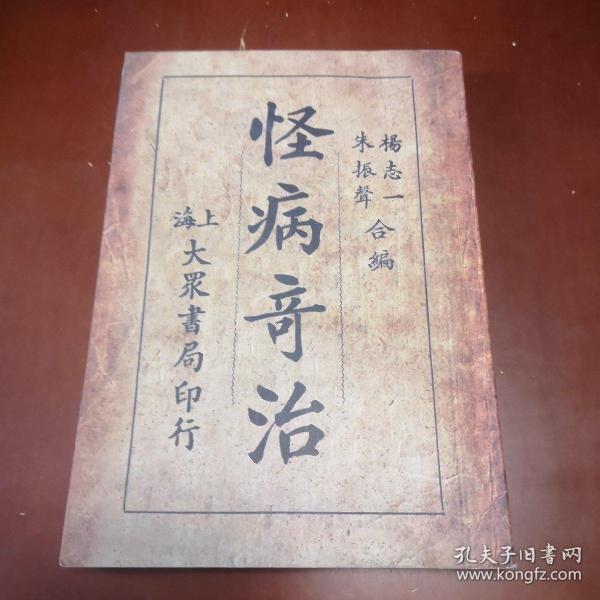 楊志一
朱振聲
合編
怪病竒治
上海
大眾書局印行
孔夫子旧書网
www.kongfz.com